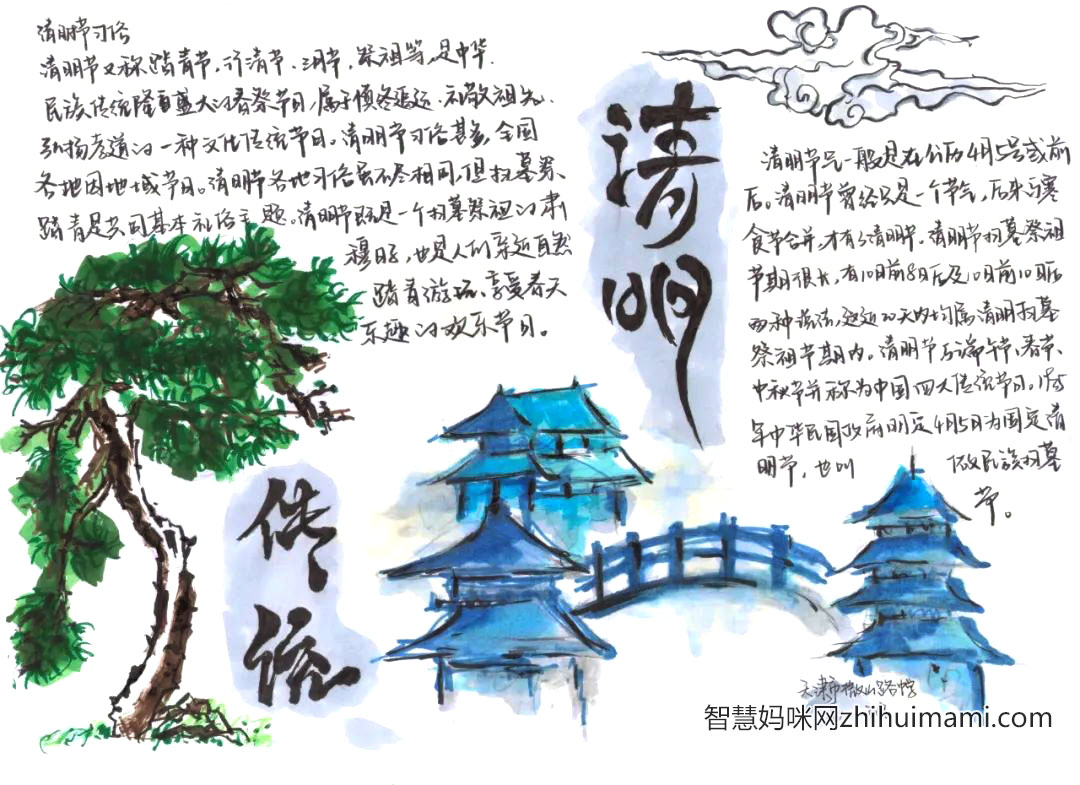 清明节习俗
清明节又称踏青节,行清节、三月节,祭祖节等,是中华
民族传统隆重盛大的春祭节日,属于慎终追远、礼敬祖先、
弘扬孝道的一种文化传统节日。清明节习俗甚多,全国
各地因地域节日。清明节各地习俗虽不尽相同,但扫墓祭、
踏青是共同基本礼俗主题。清明节既是一个扫墓祭祖的肃
穆日子,也是人们亲近自然
踏青游玩、享受春天
乐趣的欢乐节日。
清明
清明节气一般是在公历4月5号或前
后。清明节曾经只是一个节气,后来与寒
食节合并,才有了清明节。清明节扫墓祭祖
节期很长,有10日前8日后及10日前10日后
两种说法,这近20天内均属清明扫墓
祭祖节期内。清明节与端午节、春节、
中秋节并称为中国四大传统节日。1935
年中华民国政府明定4月5日为国定清
明节,也叫 做民族扫墓
节。
传统
天津市微山路中学
智慧妈咪网zhihuimami.com